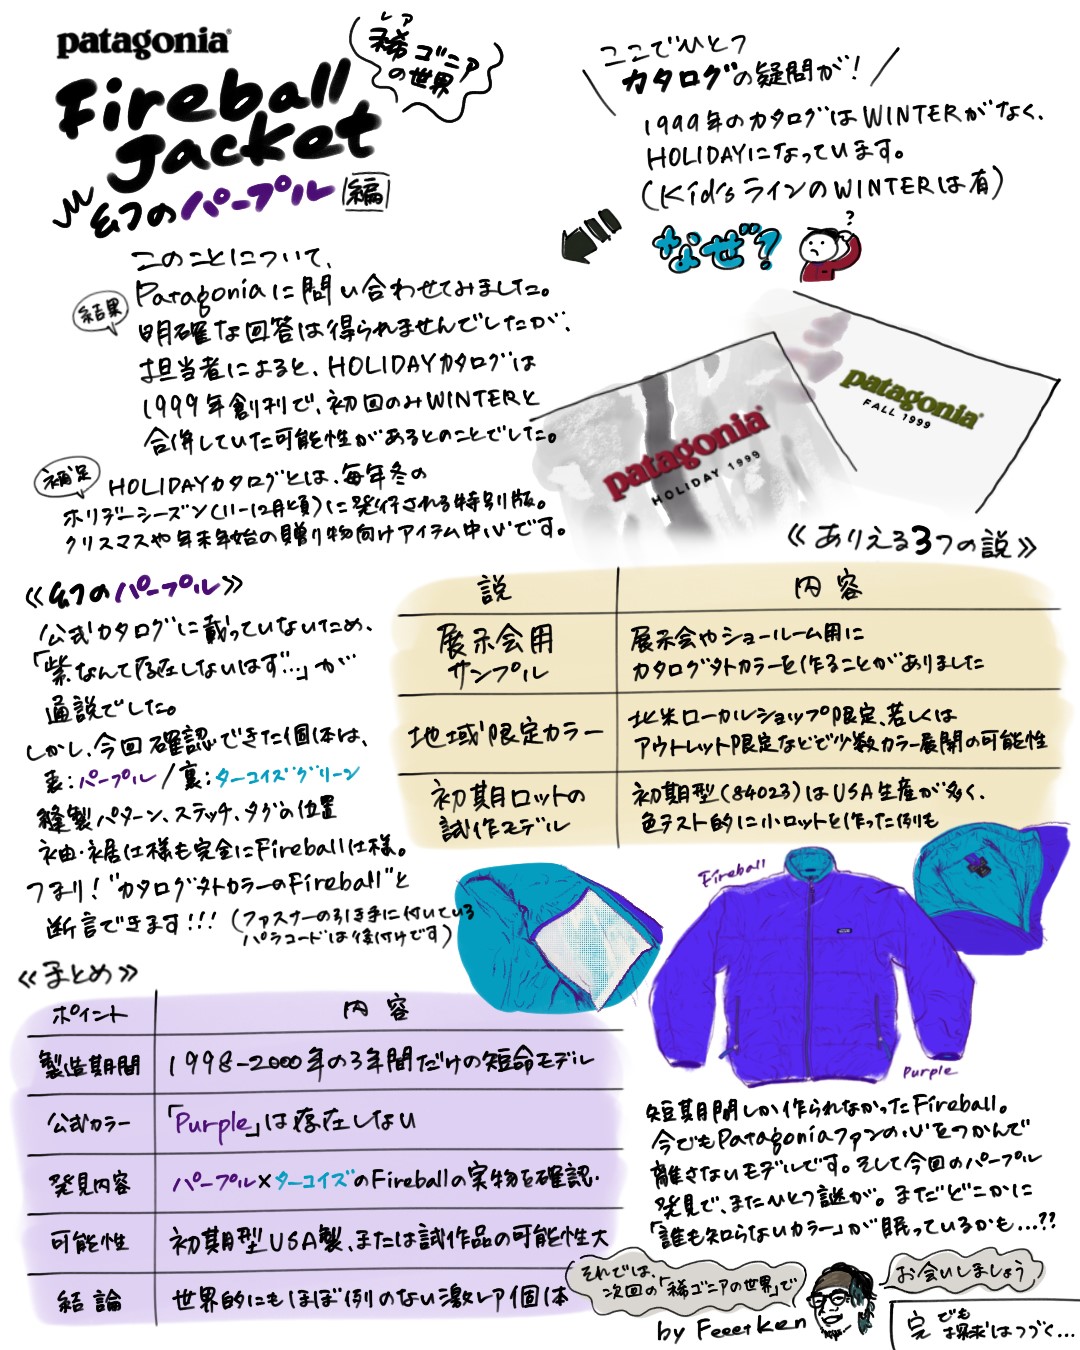 patagonia
Fireball
Jacket
幻のパープル編
レア
稀ゴニア
の世界
ここでひとつ
カタログの疑問が!
1999年のカタログはWINTERがなく、
HOLIDAYになっています。
(Kid'sラインのWINTERは有)
なぜ?
?
このことについて、
結果
Patagoniaに問い合わせてみました。
明確な回答は得られませんでしたが、
担当者によると、HOLIDAYカタログは
1999年創刊で、初回のみWINTERと
合併していた可能性があるとのことでした。
補足
HOLIDAYカタログとは、毎年冬の
ホリデーシーズン(11-12月頃)に発行される特別版。
クリスマスや年末年始の贈り物向けアイテム中心です。
patagonia
HOLIDAY 1999
patagonia
FALL 1999
《幻のパープル》
公式カタログに載っていないため、
「紫なんて存在しないはず…」が
通説でした。
しかし、今回確認できた個体は、
表:パープル/裏:ターコイズグリーン
縫製パターン、ステッチ、タグの位置
袖・裾仕様も完全にFireball仕様。
つまり!"カタログ外カラーのFireball"と
断言できます!!!(ファスナーの引き手に付いている
パラコードは後付けです)
《ありえる3つの説》
説 内容
展示会用サンプル 展示会やショールーム用に
カタログ外カラーを作ることがありました
地域限定カラー 北米ローカルショップ限定、若しくは
アウトレット限定などで少数カラー展開の可能性
初期ロットの試作モデル 初期型(84023)はUSA生産が多く、
色テスト的に小ロットを作った例も
Fireball
Purple
《まとめ》
ポイント 内容
製造期間 1998-2000年の3年間だけの短命モデル
公式カラー 「Purple」は存在しない
発見内容 パープル×ターコイズのFireballの実物を確認.
可能性 初期型USA製、または試作品の可能性大
結論 世界的にもほぼ例のない激レア個体
短期間しか作られなかったFireball。
今でもPatagoniaファンの心をつかんで
離さないモデルです。そして今回のパープル
発見で、またひとつ謎が。まだどこかに
「誰も知らないカラー」が眠っているかも…??
それでは、
次回の「稀ゴニアの世界」で
お会いしましょう
by Feeet Ken
完 でも
探求はつづく…